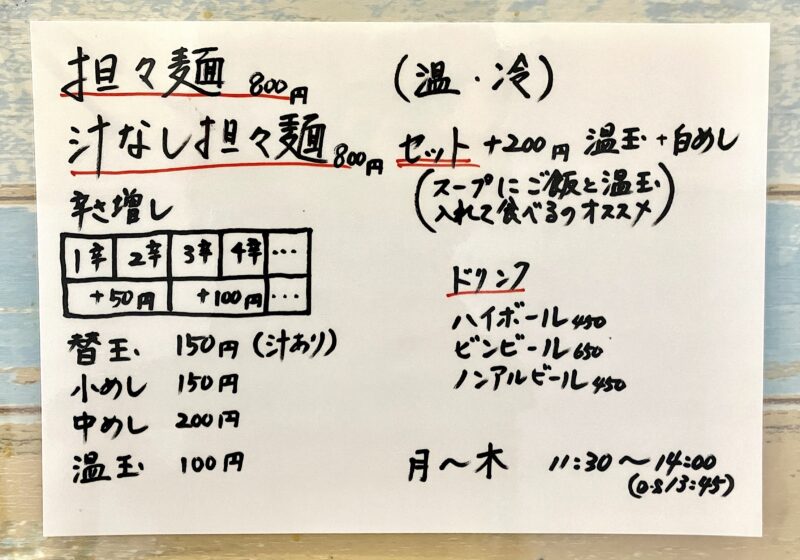 担々麺 800円 (温・冷)
汁なし担々麺 800円
セット +200円 温玉+白めし
(スープにご飯と温玉
入れて食べるのオススメ)
辛さ増し
1辛 2辛 3辛 4辛 …
+50円 +100円 …
替玉 150円 (汁あり)
小めし 150円
中めし 200円
温玉 100円
ドリンク
ハイボール 450
ビンビール 650
ノンアルビール 450
月〜木 11:30〜14:00
(o.s 13:45)